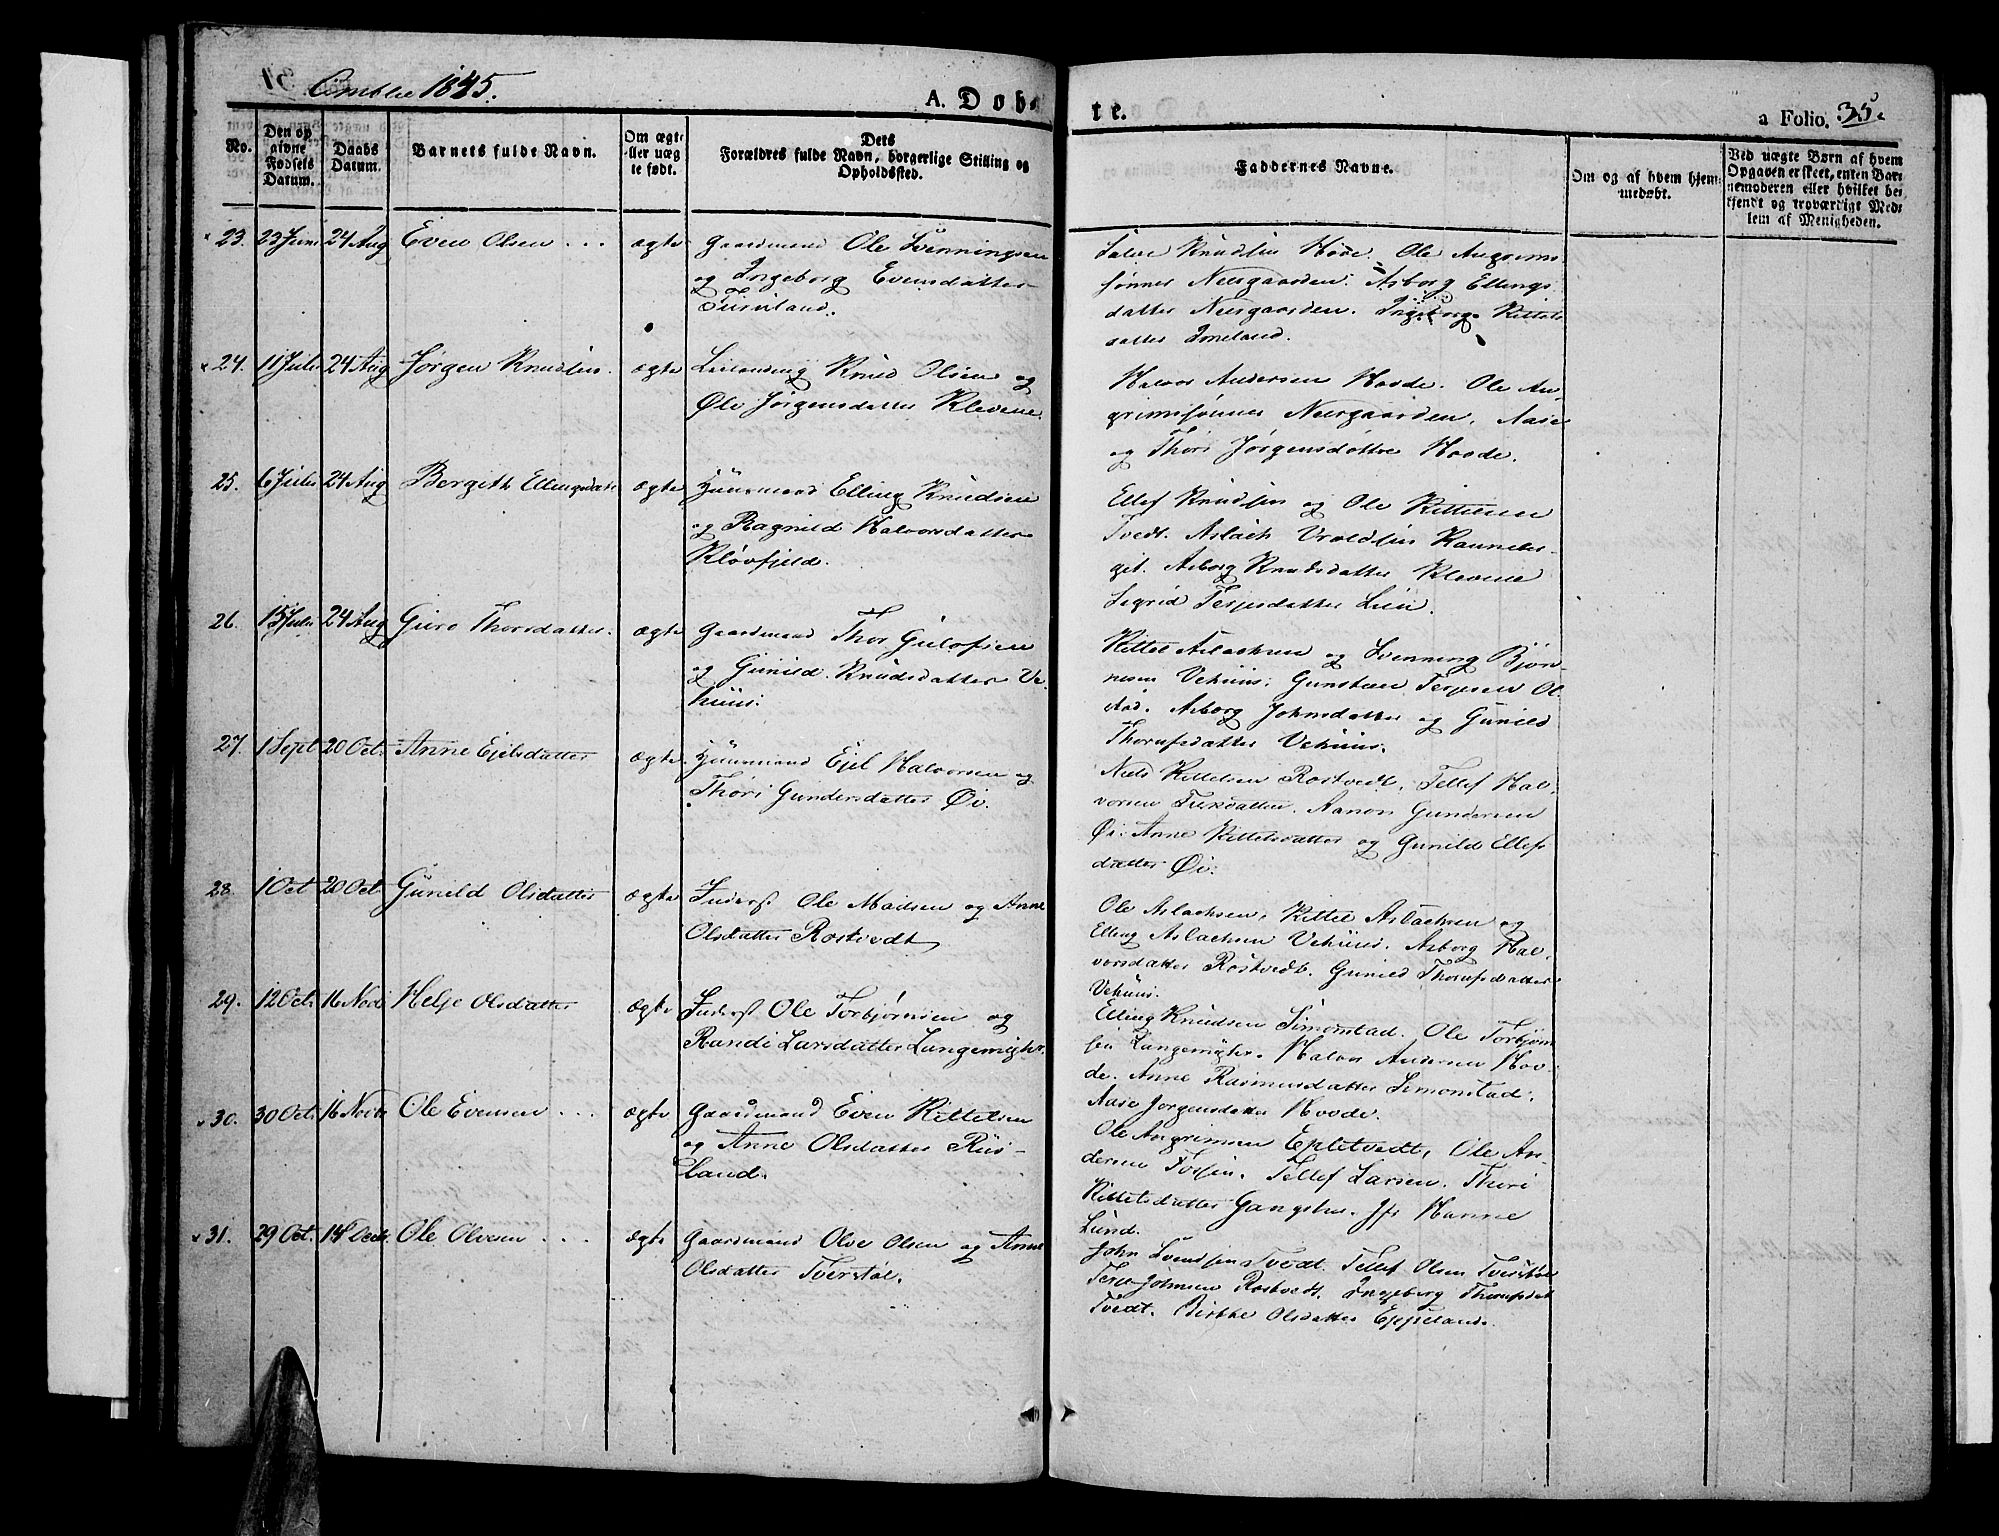 Omblie 1845.
A. Døbte.
a Folio. 35.
No.
Den op
givne
Fødsels
Datum.
Daabs
Datum.
Barnets fulde Navn.
Om ægte
eller uæg
te født.
Dets
Forældres fulde Navn, borgerlige Stilling og
Opholdssted.
Faddernes Navne.
Om og af hvem hjem-
medøbt.
Ved uægte Børn af hvem
Opgaven er skeet, enten Bar-
nemoderen eller hvilket be-
kjendt og troværdigt Med-
lem af Menigheden.
23. 23 Juni 24 Aug Even Olsen ... ægte Gaardmand Ole Svenningsen
og Ingeborg Evensdatter
Salve Knudsen Hovde. Ole Angrims
sønnes Neergaarden. Asborg Ellings
datter Neergaarden. Ingeborg Kittels
datter
24. 11 Juli 24 Aug Jørgen Knudsen. ægte Leilænding Knud Olsen og
Øli Jørgensdatter Klevene.
Halvor Andersen Hovde. Ole An-
grimssønnes Neergaarden, Aase
og Thori Jørgensdøttre Hovde.
25. 6 Juli 24 Aug Bergith Ellingsdatt ægte Huusmand Elling Knudsen
og Ragnild Halvorsdatter
Kløvfjeld.
Ellef Knudsen og Ole Kittelsen
Tvedt. Aslach Vraldsen Ramneber-
get. Asborg Knudsdatter Klevene
Sigrid Terjesdatter Lien.
26. 15 Juli 24 Aug Guro Thorsdatter. ægte Gaardmand Thor Gulofsen
og Gunild Knudsdatter Ve-
huus.
Kittel Aslachsen og Svenning Bjøn-
nesen Vehuus. Gunsteen Terjesen Ol-
stad. Asborg Johnsdatter og Gunild
Thorufsdatter Vehuus.
27. 1 Sept 20 Oct. Anne Ejelsdatter ægte Huusmand Ejel Halvorsen og
Thori Gundersdatter Øi.
Niels Kittelsen Rostvedt, Tellef Hal-
vorsen. Aanon Gundersen
Øi. Anne Kittelsdatter og Gunild Ellefs
datter Øi.
28. 1 Oct 20 Oct. Gunild Olsdatter ægte Inderst Ole Madsen og Anne
Olsdatter Rostvedt
Ole Aslachsen, Kittel Aslachsen og
Elling Aslachsen Vehuus. Asborg Hal-
vorsdatter Rostvedt. Gunild Thorufsdatter
Vehuus.
29. 12 Oct. 16 Nov. Helje Olsdatter ægte Inderst Ole Torbjørnsen og
Randi Larsdatter Langemyhr.
Elling Knudsen Simonstad. Ole Torbjørn
sen Langemyhr. Halvor Andersen Hov-
de. Anne Rasmusdatter Simonstad.
Aase Jørgensdatter Hovde.
30. 30 Oct. 16 Novbr Ole Evensen ... ægte Gaardmand Even Kittelsen
og Anne Olsdatter Riis-
land.
Ole Angrimsen Epletvedt, Ole An-
dersen. Tellef Larsen. Thori
Kittelsdatter. Jfr Hanne
Lund.
31. 29 Oct. 14 Decbr. Ole Olvesen ... ægte Gaardmand Olve Olsen og Anne
Olsdatter Tverstøl.
John Svendsen Tvedt. Tellef Olsen Tverstøl
Terje Johnsen Rostvedt. Ingeborg Thorufsdat
Tvedt. Birthe Olsdatter Eppeland.